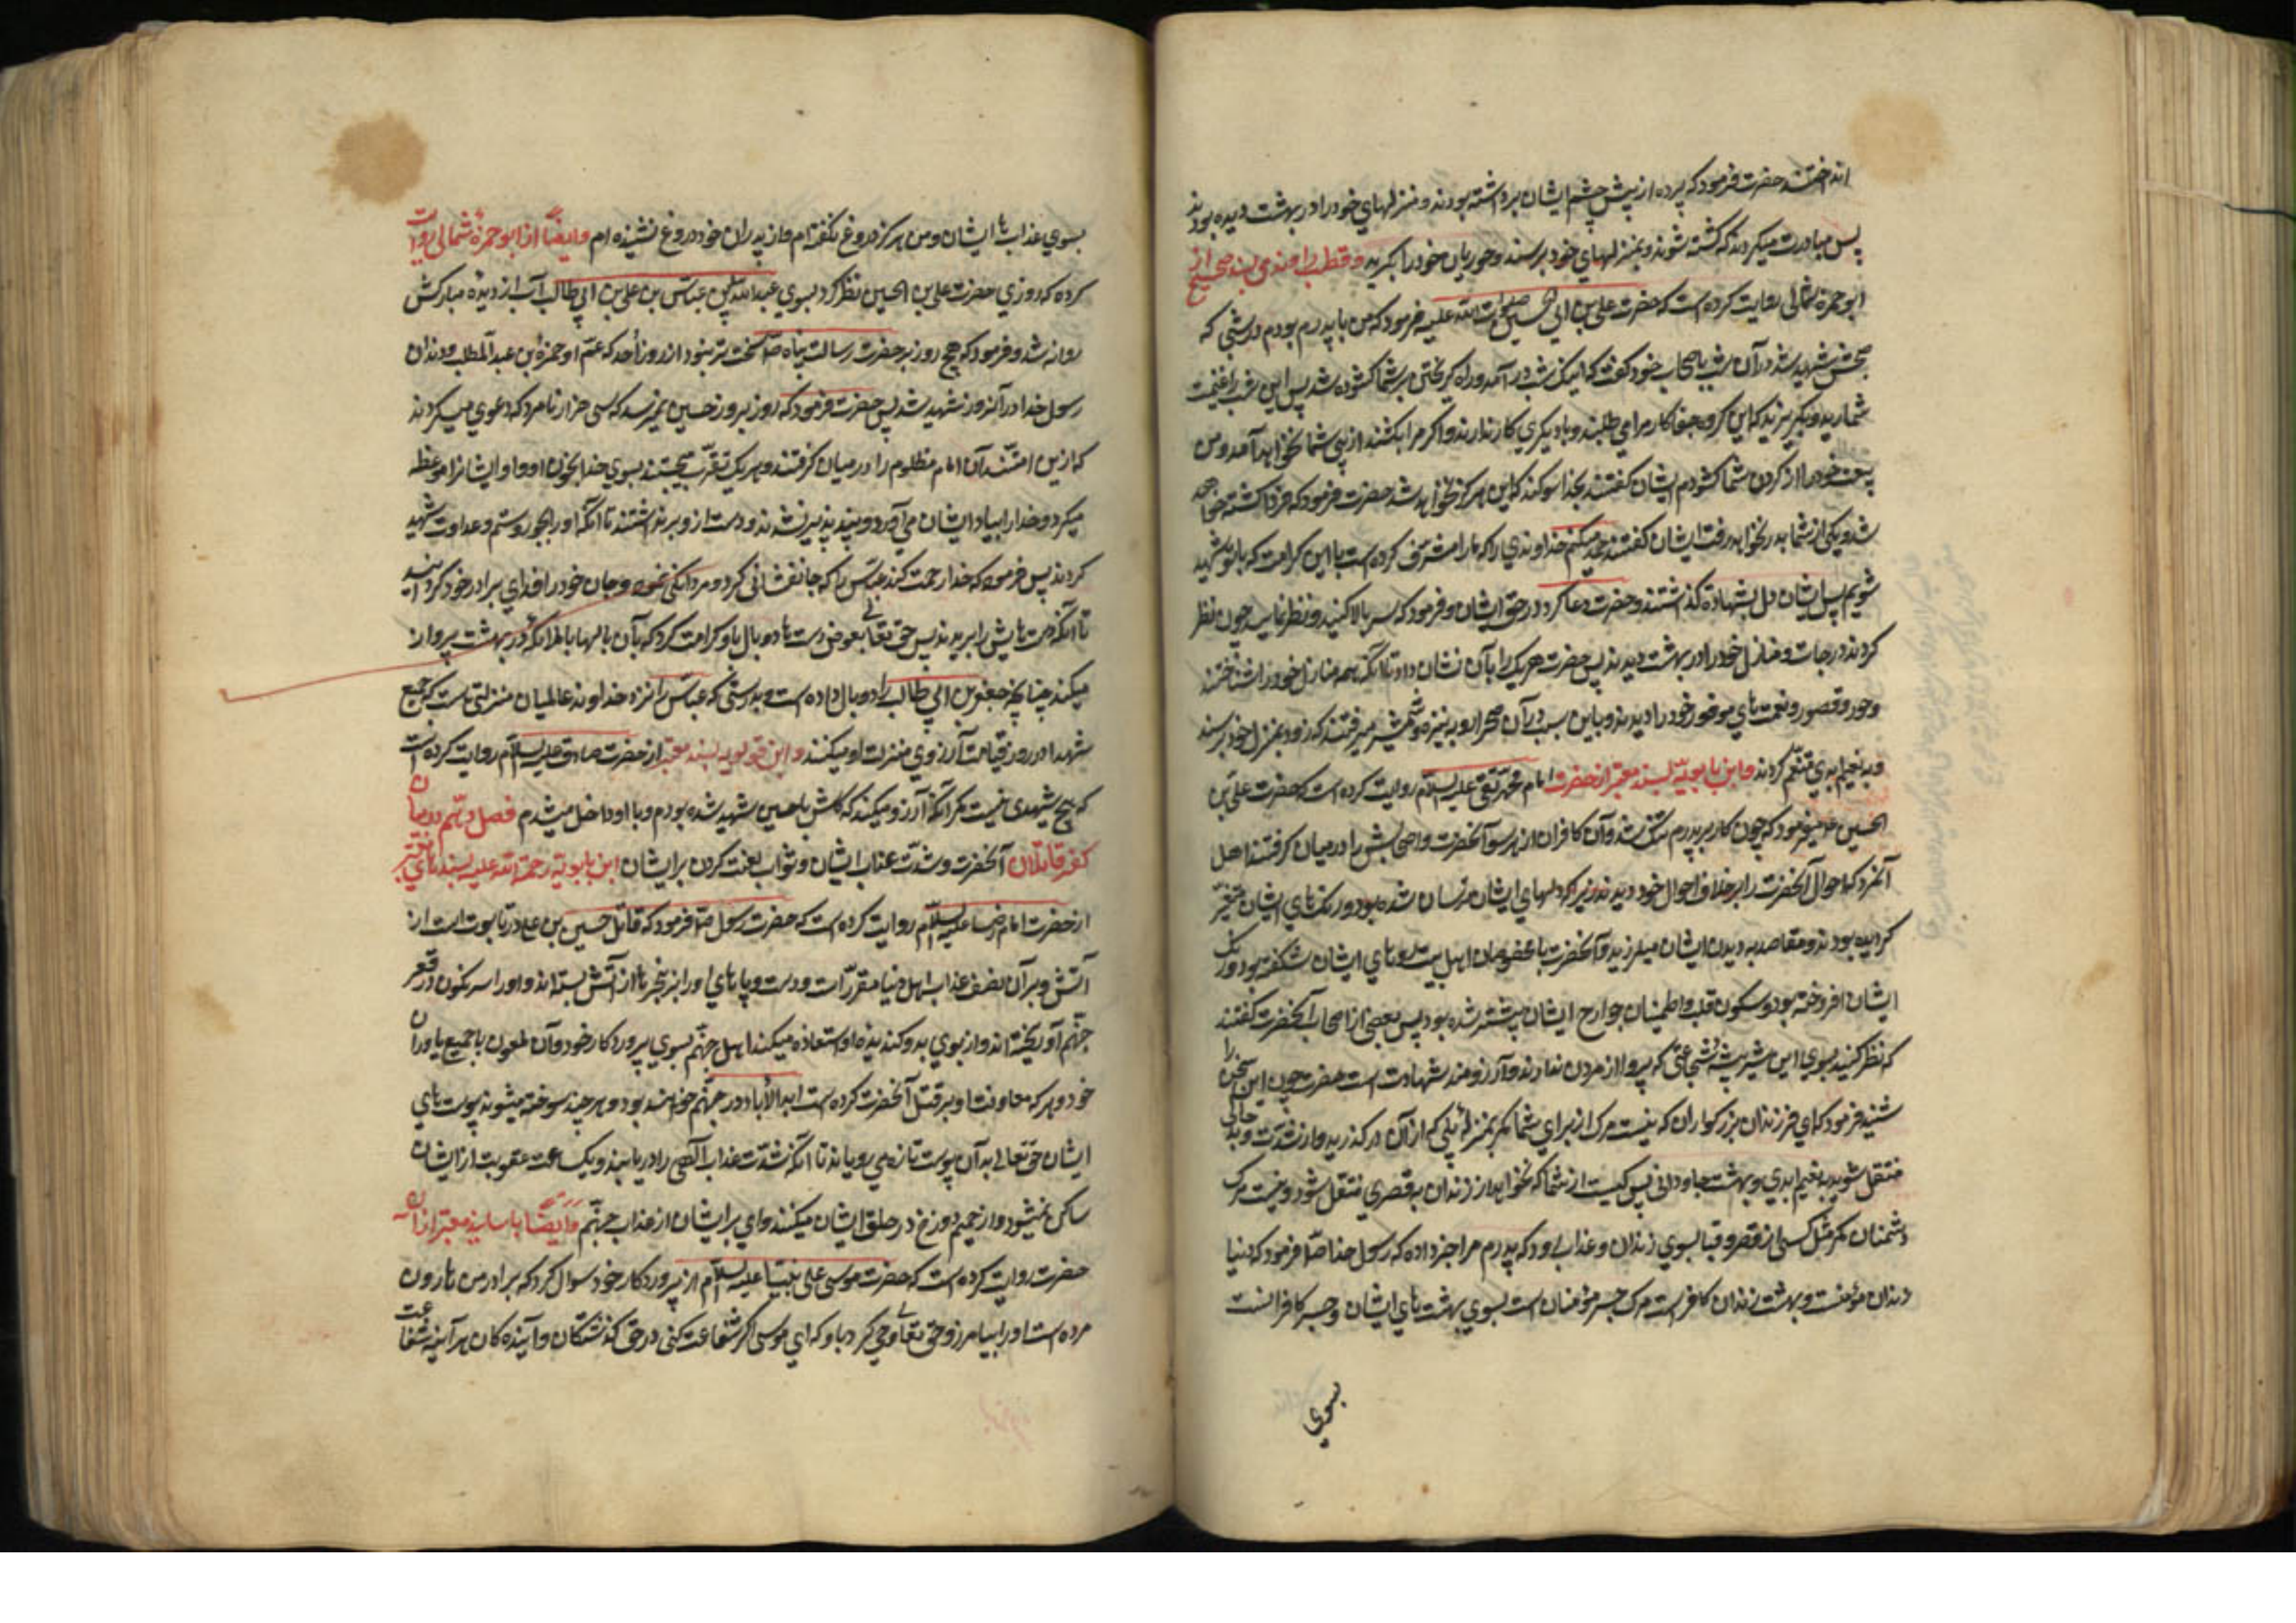 انداختند حضرت فرمود که پرده از پیش چشم ایشان برداشته بودند و منزلهای خود را در بهشت دیده بودند
پس مبادرت میکردند که کشته شوند و بمنزلهای خود برسند و حوریان خود را و قطب راوندی بسند صحیح از
ابو حمزه ثمالی روایت کرده است که حضرت علی بن الحسین صلوات الله علیه فرمود که من با پدرم بودم در شبی که
صبحش شهید شد در آن شب باصحاب خود گفت که اینک شب درآمد و راه گریختن بر شما گشوده شد پس این شب را غنیمت
شمارید و بگریزید که این گروه جفاکار مرا می طلبند و با دیگری کار ندارند و اگر مرا بکشند از پی شما نخواهند آمد و من
بیعت خود را از گردن شما گشودم ایشان گفتند بخدا سوگند که این هرگز نخواهد شد حضرت فرمود که فردا کشته خواهید
شد و یکی از شما بدر نخواهد رفت ایشان گفتند حمد میکنم خداوندی را که ما را مشرف کرده است باین کرامت که با تو شهید
شویم پس ایشان دل بشهادة گذاشتند و حضرت دعا کرد در حق ایشان و فرمود که سر بالا کنید و نظر نمایید چون نظر
کردند درجات و منازل خود را در بهشت دیدند پس حضرت هر یک را بآن نشان داد تا آنکه همه منازل خود را شناختند
و حور و قصور و نعمت های موفور خود را دیدند و باین سبب در آن صحرا رو به نیزه و شمشیر میرفتند که زود بمنزل خود برسند
و بنعیم ابدی متنعم گردند و ابن بابویه بسند معتبر از حضرت امام محمد تقی علیه السلام روایت کرده است که حضرت علی بن
الحسین ع میفرمود که چون کار بر پدرم تنگ شد و آن کافران از هر سو آنحضرت و اصحابش را در میان گرفتند اهل
آنمرد که احوال آنحضرت را بر خلاف احوال خود دیدند زیرا که دلهای ایشان ترسان شده بود و رنک های ایشان متغیر
گردیده بود و آنحضرت با مخصوصان اهل بیت رو های ایشان شکفته بود و رنک
ایشان افروخته بود و سکون قلب و اطمینان جوارح ایشان بیشتر شده بود پس بعضی از اصحاب آنحضرت گفتند
که نظر کنید بسوی این شیر بیشه شجاعت که پروا از مردن ندارند و آرزومند شهادت است حضرت چون این سخن را
شنید فرمود که ای فرزندان بزرگواران که نیست مرک از برای شما مگر بمنزله پلی که از آن درگذرید و از شدت و بدحالی
منتقل شوید بنعیم ابدی و بهشت جاودانی پس کیست از شما که نخواهد از زندان به قصری منتقل شود و نیست مرک
دشمنان مگر مثل کسی از قصر و قبا بسوی زندان و عذاب رود که پدرم مرا خبر داده که رسول خدا ص فرمود که دنیا
زندان مؤمنست و بهشت زندان کافر است مرک جسر مؤمنان است بسوی بهشت های ایشان و جسر کافرانست
بسوی
بسوی عذاب ها ایشان و من هرگز دروغ نگفته ام و از پدران خود دروغ نشنیده ام و ایضاً از ابو حمزه ثمالی روایت
کرده که روزی حضرت علی بن الحسین نظر کرد بسوی عبیدالله پس عباس بن علی بن ابی طالب آب از دیده مبارکش
روانه شد و فرمود که هیچ روز بر حضرت رسالت پناه ص سخت تر نبود از روز اُحد که عم او حمزة بن عبدالمطلب و دندان
رسول خدا در آنروز شهید شد پس حضرت فرمود که روز بروز حسین نمیرسد که سی هزار نامرد که دعوی میکردند
که از این امتند آن امام مظلوم را در میان گرفتند و هر یک تقرب میجستند بسوی خدا بخون او و او ایشانرا موعظه
میکرد و خدا را بیاد ایشان می آورد و پند پذیر نشدند و دست از او برنداشتند تا آنکه او را بجور و ستم و عداوت شهید
کردند پس فرمود که خدا رحمت کند عباس را که جانفشانی کرد و مردانگی نمود و جان خود را فدای برادر خود گردانید
تا آنکه دست هایش را بریدند پس حق تعالی بعوض دست ها دو بال باو کرامت کرد که بآن بالها با ملائکه در بهشت پرواز
میکند چنانچه جعفر بن ابی طالب را دو بال داده است و بدرستی که عباس را نزد خداوند عالمیان منزلتی است که جمیع
شهدا در روز قیامت آرزوی منزلت او میکنند و ابن قولویه بسند معتبر از حضرت صادق علیه السلام روایت کرده است
که هیچ شهیدی نیست مگر آنکه آرزو میکند که کاش با حسین شهید شده بودم و با او داخل میشدم فصل دهم در بیان
کفر قاتلان آنحضرت و شدت عذاب ایشان و ثواب لعنت کردن بر ایشان ابن بابویه رحمة الله علیه بسندهای معتبر
از حضرت امام رضا علیه السلام روایت کرده است که حضرت رسول ص فرمود که قاتل حسین بن علی در تابوت است از
آتش و بر آن نصف عذاب اهل دنیا مقرر است و دست و پاهای او را بزنجیرها از آتش بسته اند و او را سرنگون در قعر
جهنم آویخته اند و از بوی بد و گندیده او استعاذه میکنند اهل جهنم بسوی پروردگار خود و آن ملعون با جمیع یاوران
خود و هر که معاونت او بر قتل آنحضرت کرده است ابد الآباد در جهنم خواهند بود و هر چند سوخته میشود پوست های
ایشان حق تعالی بر آن پوست تازه می رویاند تا آنکه شدت عذاب الهی را دریابند و یک ساعت عقوبت از ایشان
ساکن نمیشود و از حمیم دوزخ در حلق ایشان میکنند وای بر ایشان از عذاب جهنم و ایضا باسانید معتبر از آن
حضرت روایت کرده است که حضرت موسی علی نبینا علیه السلام از پروردگار خود سوال کرد که برادر من هارون
مرده است او را بیامرز و حق تعالی وحی کرد باو که ای موسی اگر شفاعت کنی در حق گذشتگان و آینده گان هر آینه شفاعت